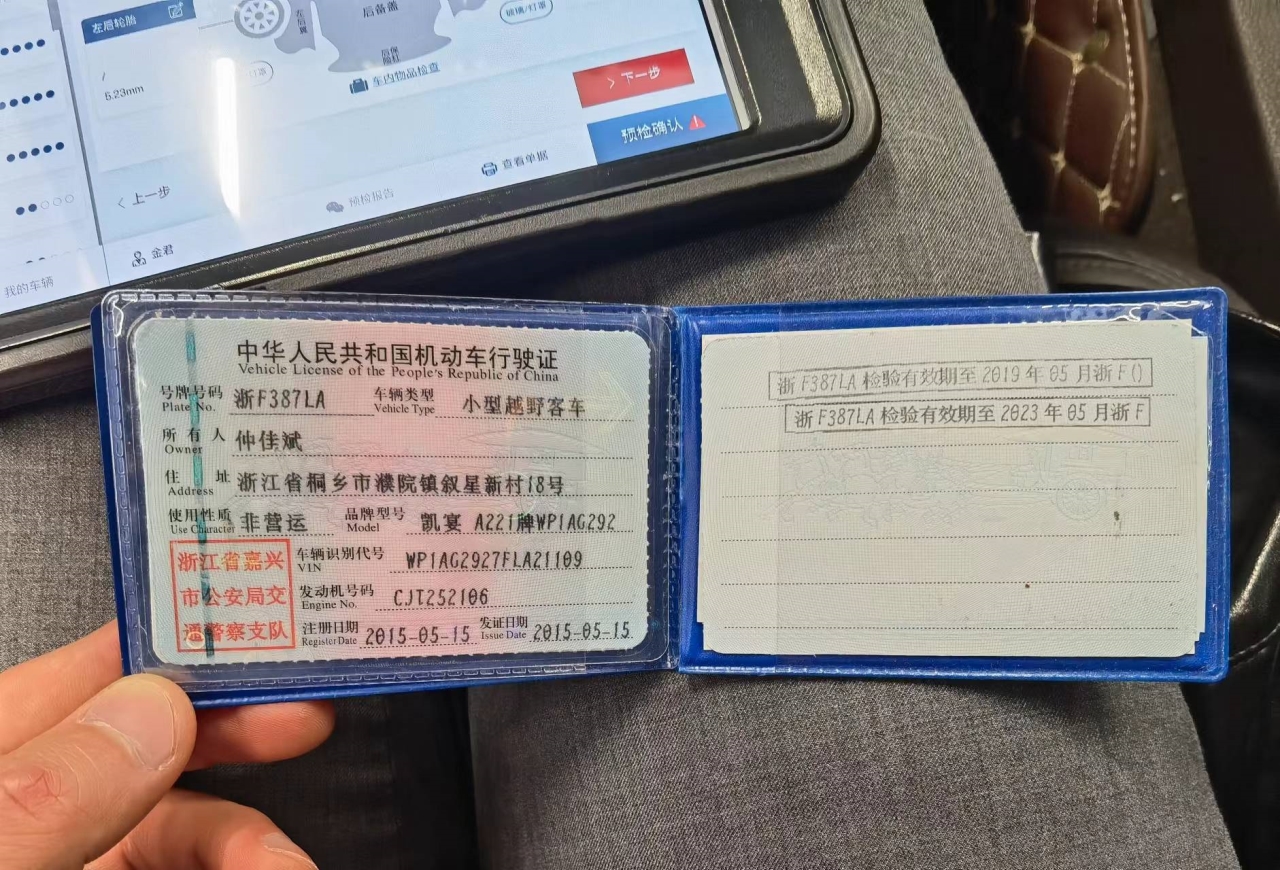 左后轮胎
左后翼
后备箱
玻璃/灯罩
/
5.23mm
后保险杠
车内物品检查
> 下一步
预检确认
< 上一步
预检报告
查看单据
我的车辆
金君
中华人民共和国机动车行驶证
Vehicle License of the People's Republic of China
号牌号码 浙F387LA 车辆类型 小型越野客车
Plate No. Vehicle Type
所有人 仲佳斌
Owner
住址 浙江省桐乡市濮院镇叙星新村18号
Address
使用性质 非营运 品牌型号 凯宴 A221牌WP1AG292
Use Character Model
浙江省嘉兴
市公安局交
通警察支队
车辆识别代号 WP1AG2927FLA21109
VIN
发动机号码 CJT252106
Engine No.
注册日期 2015-05-15 发证日期 2015-05-15
Register Date Issue Date
浙F387LA 检验有效期至 2019 年 05 月浙F()
浙F387LA 检验有效期至 2023 年 05 月浙F